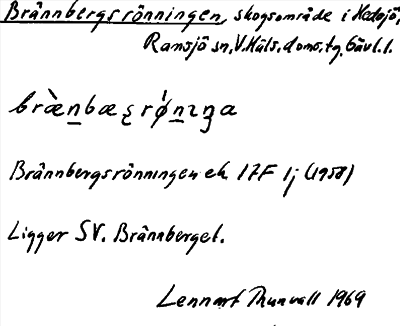 Brännbergsrönningen, skogsområde i Hedsjö,
Ransjö sn, V. Häls. doms. tg, Gävl. l.
Brännbergsrönningen ek. 17F 1j (1958)
Ligger SV. Brännberget.
Lennart Thunvall 1969